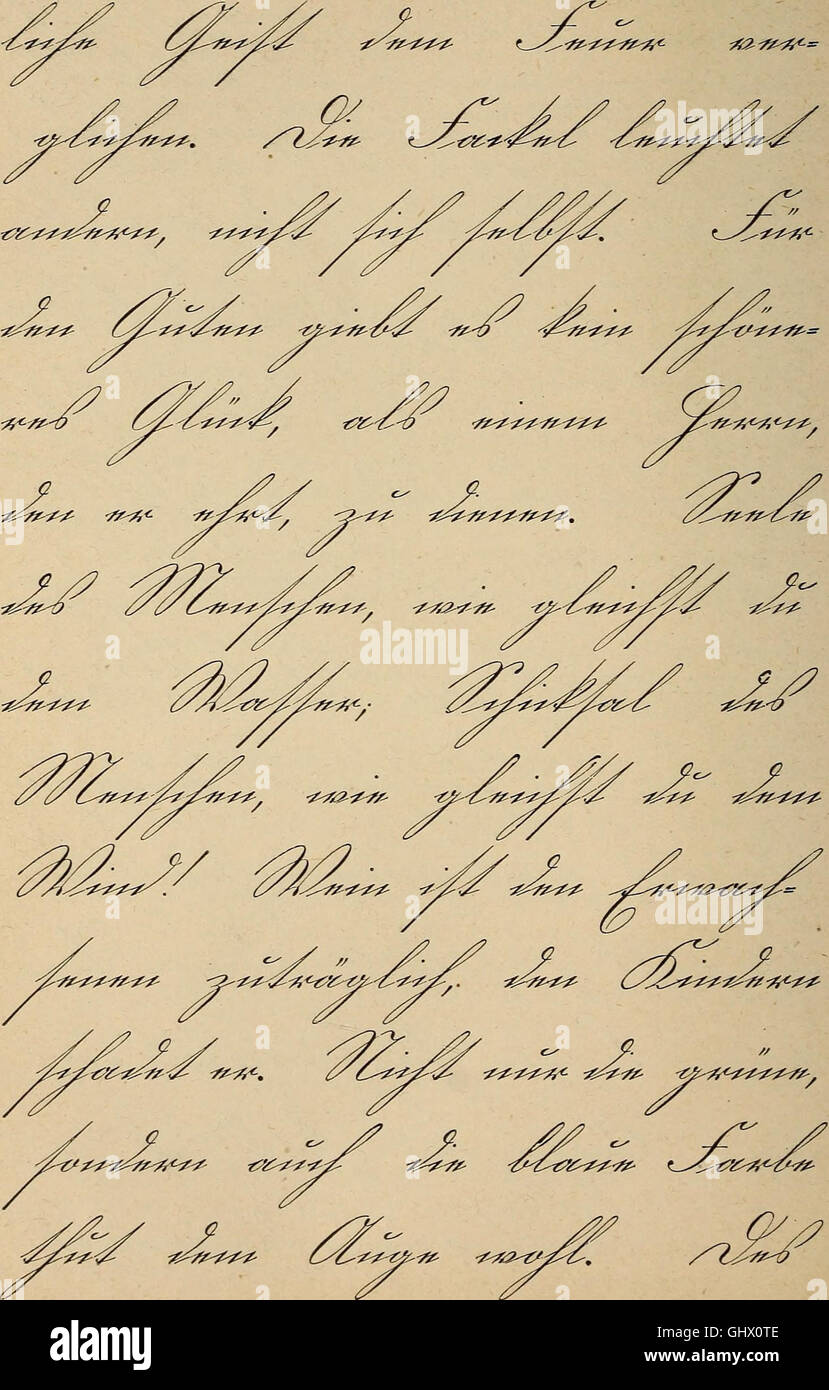 liche Geist dem Feuer ver=
glichen. Die Fackel leuchtet
andern, nicht sich selbst. Für
den Guten giebt es kein schöne=
res Glück, als einem Herrn,
den er ehrt, zu dienen. Seele
des Menschen, wie gleichst du
dem Wasser; Schicksal des
Menschen, wie gleichst du dem
Wind! Wein ist den Erwach=
senen zuträglich, den Kindern
schadet er. Nicht nur die grüne,
sondern auch die blaue Farbe
thut dem Auge wohl. Des
alamy
alamy stock photo
GHX0TE
www.alamy.com